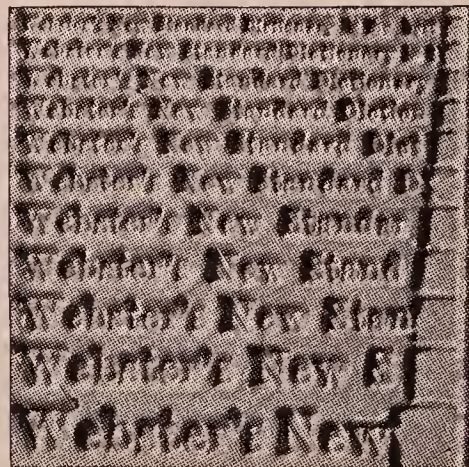 Webster's New Standard Dictionary
Webster's New Standard Dictionary
Webster's New Standard Dictionary
Webster's New Standard Diction
Webster's New Standard Dict
Webster's New Standard D
Webster's New Standar
Webster's New Stand
Webster's New Stan
Webster's New S
Webster's New